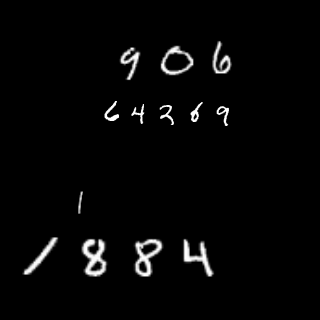 906
64269
1
1884